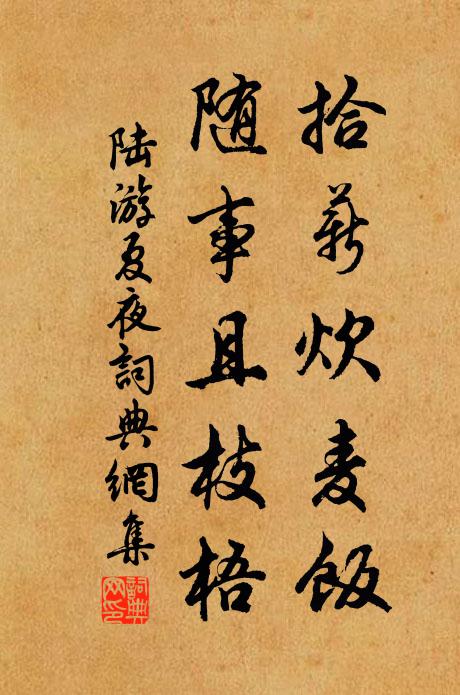 拾薪炊麦飯
随事且枝梧
陆游夏夜詞典網集
詞典
网印